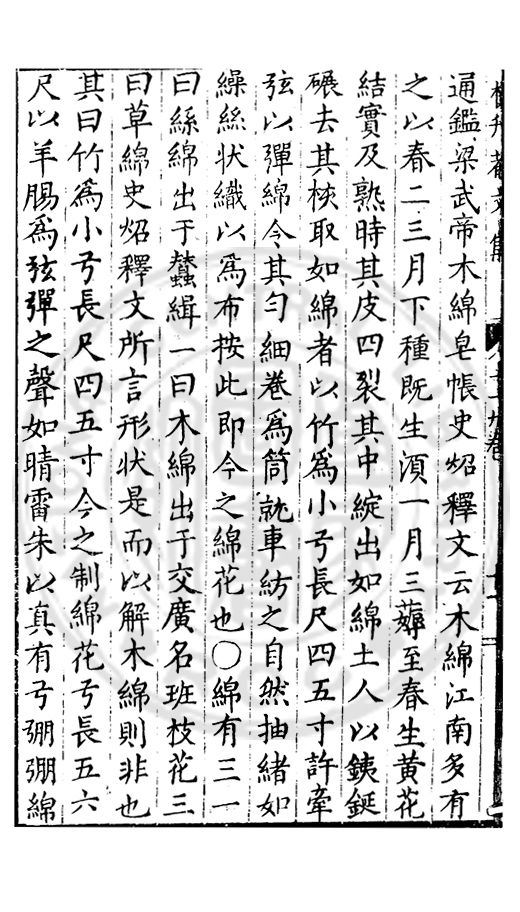 通鑑梁武帝木綿皂帳史炤釋文云木綿江南多有
之以春二三月下種既生湏一月三薅至春生黄花
結實及熟時其皮四裂其中綻出如綿土人以鉄鋋
碾去其核取如綿者以竹為小弓長尺四五寸許牽
弦以彈綿令其匀細卷為筒就車紡之自然抽緒如
繰絲状織以為布按此即今之綿花也〇綿有三一
曰絲綿出于蠶緝一曰木綿出于交廣名班枝花三
曰草綿史炤釋文所言形状是而以解木綿則非也
其曰竹為小弓長尺四五寸今之制綿花弓長五六
尺以羊腸為弦彈之聲如晴雷朱以真有弓弸弸綿